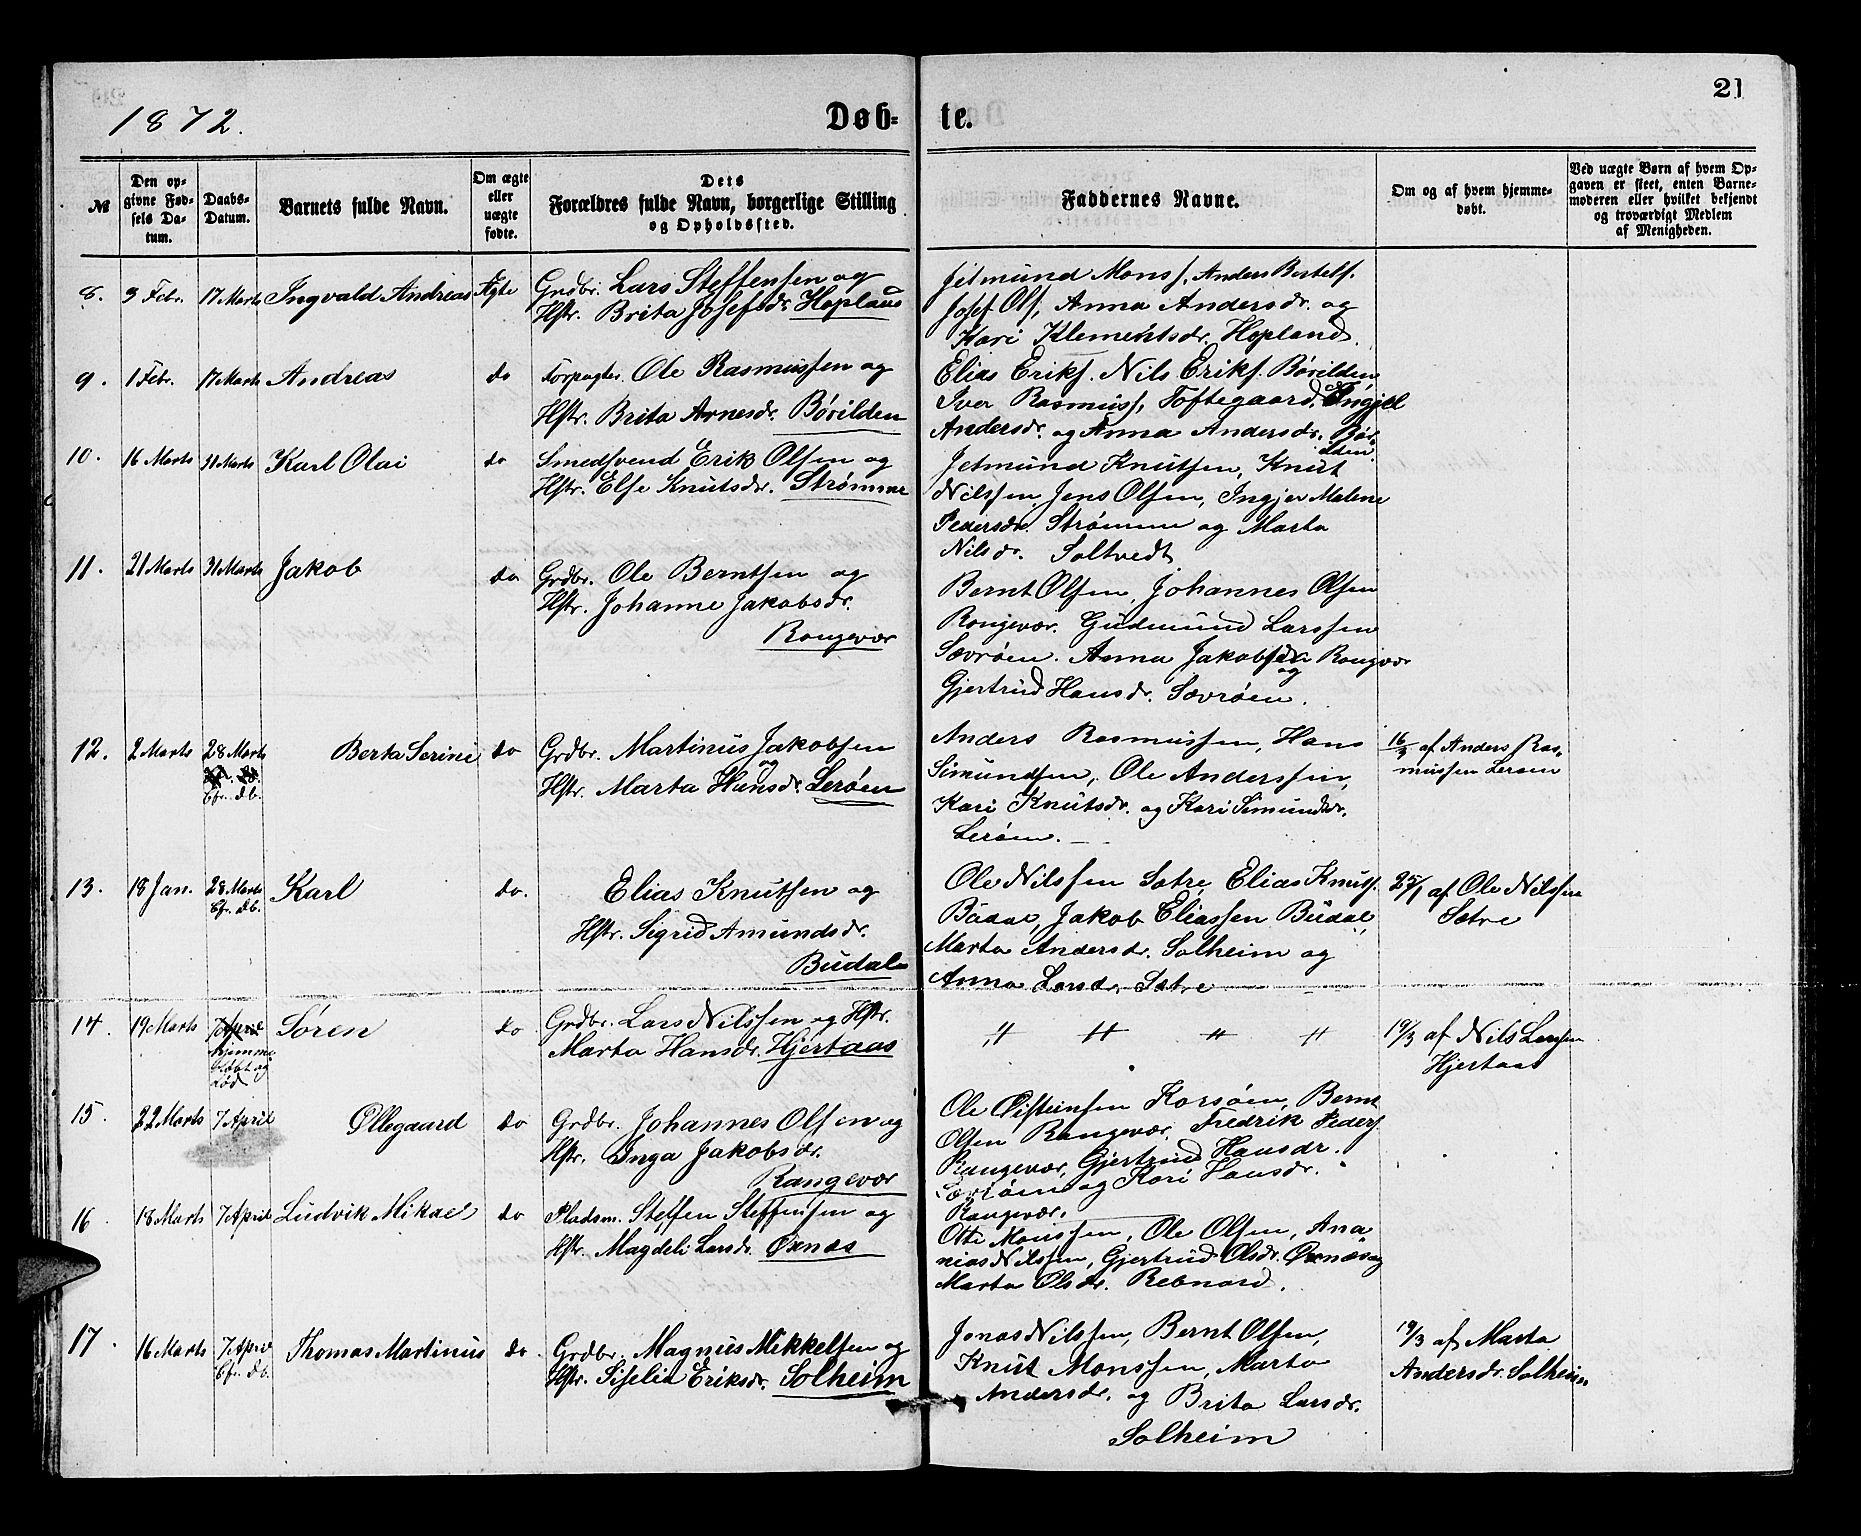 21
1872.
Døb- te.
№
Den op-
givne Fød-
sels Da-
tum.
Daabs-
Datum.
Barnets fulde Navn.
Om ægte
eller
uægte
fødte.
Dets
Forældres fulde Navn, borgerlige Stilling
og Opholdssted.
Faddernes Navne.
Om og af hvem hjemme-
døbt.
Ved uægte Børn af hvem Op-
gaven er skeet, enten Barne-
moderen eller hvilket bekjendt
og troværdigt Medlem
af Menigheden.
8. 3 Febr. 17 Marts Ingvald Andreas Ægte Grdbr. Lars Steffensen og
Hstr. Brita Josefsdr. Hopland
Jetmund Monss., Anders Bertels.
Josef Ols., Anna Andersdr. og
Kari Klementsdr. Hopland.
9. 1 Febr. 17 Marts Andreas do Forpagter. Ole Rasmussen og
Hstr. Brita Arnesdr. Børilden
Elias Eriks. Nils Eriks. Børilden
Iver Rasmuss. Toftegaard,
Andersdr. og Anna Andersdr. Bør-
ilden.
10. 16 Marts 31 Marts Karl Olai do Smedsvend Erik Olsen og
Hstr. Else Knutsdr. Strømme
Jetmund Knutsen, Knut
Nilssen, Jens Olsen, Ingjer Malene
Pedersdr. Strømme og Marta
Nilsdr. Soltvedt
11. 21 Marts 31 Marts Jakob do Grdbr. Ole Berntsen og
Hstr. Johanne Jakobsdr.
Rongevær
Bernt Olsen, Johannes Olsen
Rongevær. Gudmund Larssen
Sævrøen. Anna Jakobsdr. Rongevær
og
Gjertrud Hansdr. Sævrøen.
12. 2 Marts 28 Marts Berta Serine do Grdbr. Martinus Jakobsen
Efr. db.
og
Hstr. Marta Hansdr. Lerøen
Anders Rasmussen, Hans
Simundsen, Ole Anderssen,
Kari Knutsdr. og Kari Simundsdr.
Lerøen.
16/3 af Anders Ras-
mussen Lerøen
13. 18 Jan. 28 Marts Karl do. Elias Knutsen og
Efr. db.
Hstr. Sigrid Amundsdr.
Budal
Ole Nilssen Sætre, Elias Knuts.
Budal, Jakob Eliassen Budal,
Marta Andersdr. Solheim og
Anna Larsdr. Sætre
25/1 af Ole Nilssen
Sætre
14. 19 Marts 7 April Søren do Grdbr. Lars Nilssen og Hstr.
hjemme
døbt og
død
Marta Hansdr. Hjertaas
" " " "
19/3 af Nils Larssen
Hjertaas
15. 22 Marts 7 April Øllegaard do Grdbr. Johannes Olsen og
Hstr. Inga Jakobsdr.
Rangevær
Ole Øisteinsen Korsøen, Bernt
Olsen Rangevær, Fredrik Peders.
Rangevær, Gjertrud Hansdr.
Sævrøen og Kari Hansdr.
Rangevær.
16 18 Marts 7 April Ludvik Mikael do Pladsm. Steffen Steffensen og
Hstr. Magdeli Larsdr. Øxnæs
Otte Monssen, Ole Olsen, Ana-
nias Nilssen, Gjertrud Olsdr. Øxnæs og
Marta Olsdr. Rebnord.
17. 16 Marts 7 April Thomas Martinus do. Grdbr. Magnus Mikkelsen og
Efr. db.
Hstr. Siselia Eriksdr. Solheim
Jonas Nilssen, Bernt Olsen,
Knut Monssen, Marta
Andersdr. og Brita Larsdr.
Solheim
19/3 af Marta
Andersdr. Solheim